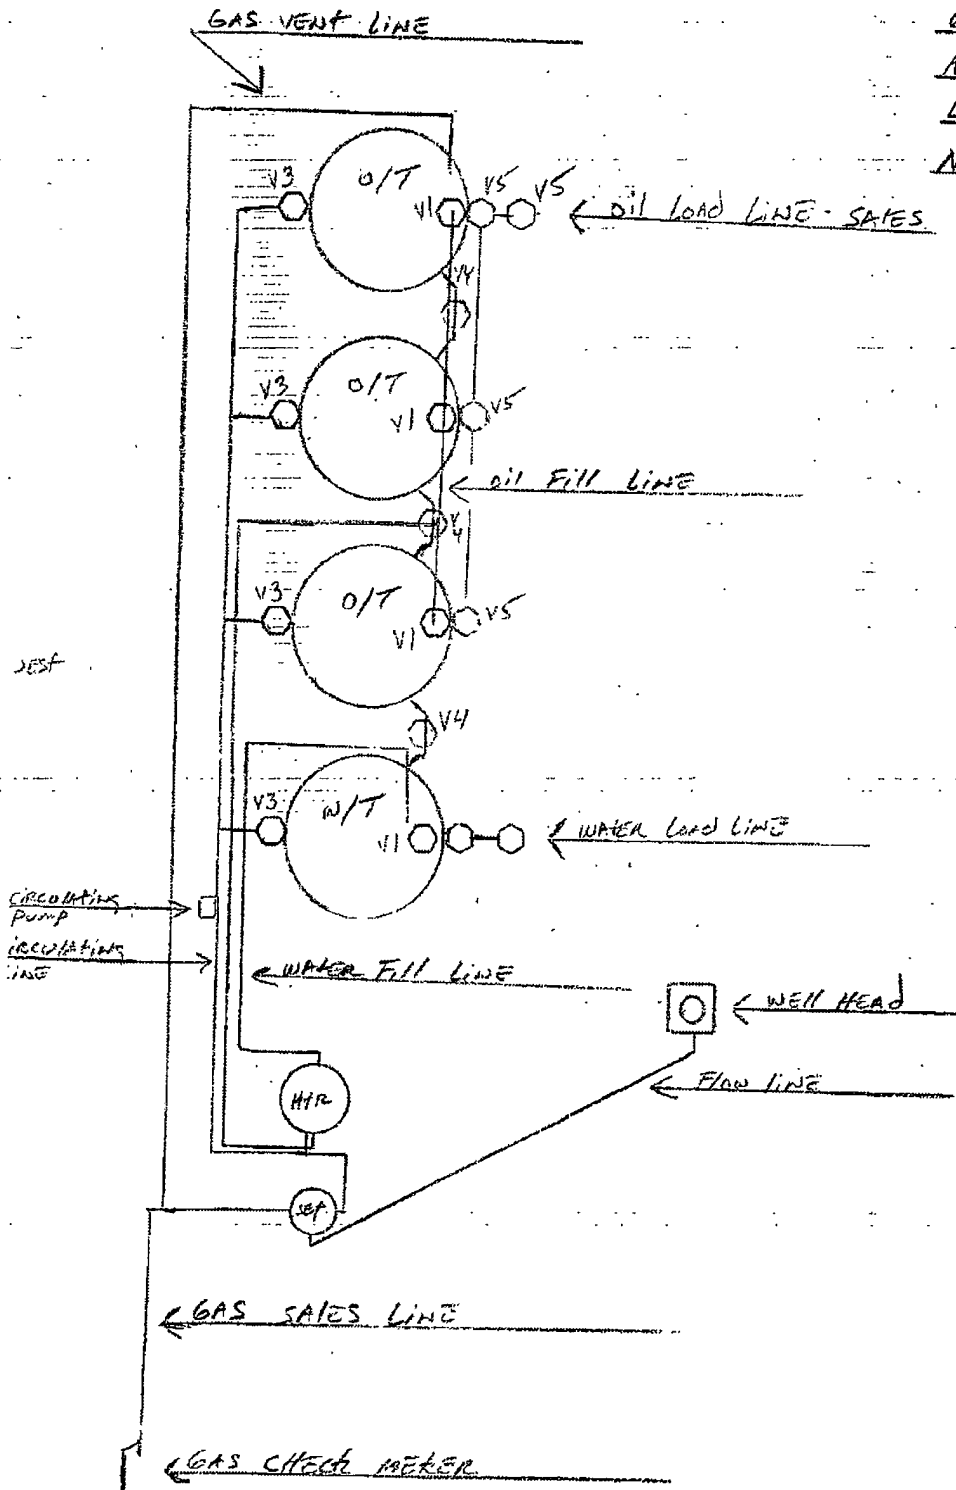 GAS VENT LINE
O/T
V3
V1
V5
V5
OIL LOAD LINE - SALES
V4
O/T
V3
V1
V5
OIL FILL LINE
V4
O/T
V3
V1
V5
V4
W/T
V3
V1
WATER LOAD LINE
CIRCULATING
PUMP
IRCULATING
INE
WATER FILL LINE
WELL HEAD
FLOW LINE
HTR
SEP
GAS SALES LINE
GAS CHECK METER